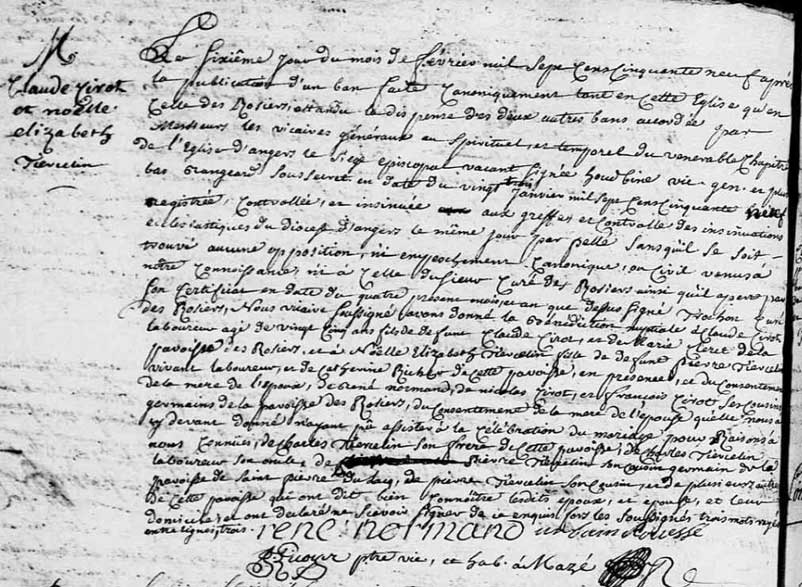 M
Claude Cirot
et noëlle
elizabeth
Tiercelin
Le sixième jour du mois de février mil sept cens cinquante neuf après
la publication d'un ban faite canoniquement tant en cette Eglise qu'en
celle des Rosiers, attandu la dispense des deux autres bans accordée par
Messieurs les vicaires généraux au spirituel, et temporel du venerable Chapitre
de l'Eglise d'angers le siège episcopal vacant signée houdbine vic. gen. et plus
bas Grangeard Sous Secret. en date du vingt trois janvier mil sept cens cinquante neuf
registrée, controllée, et insinuée aux greffe, et controlle des insinuations
eclesiastiques du diocese d'angers le même jour par pelle sans qu'il se soit
trouvé aucune opposition, ni empeschement canonique, ou civil venus à
notre connoissance, ni à celle du sieur curé des Rosiers ainsi qu'il apert par
son certificat en date du quatre présent mois, et an que dessus signé Trochon curé
des Rosiers, Nous vicaire soussigné avons donné la bénédiction nuptiale à Claude Cirot,
laboureur agé de vingt cinq ans fils de defunt Claude Cirot, et de Marie Leret de la
paroisse des Rosiers, et à Noëlle Elizabeth Tiercelin fille de defunt Pierre Tiercelin
vivant laboureur, et de Catherine Richer de cette paroisse, en présence, et du consentement
de la mere de l'epoux, de René normand, de nicolas Cirot, et François Cirot, ses cousins
germains de la paroisse des Rosiers, du consentement de la mere de l'epouse qu'elle nous a
cy devant donné n'ayant pû assister à la célébration du mariage pour Raisons à
nous connues, de Charles Tiercelin son frere de cette paroisse, de Charles Tiercelin
laboureur son oncle, de Pierre Tiercelin son cousin germain de la
paroisse de Saint pierre du lacq, de pierre Tiercelin son cousin, et de plusieurs autres
de cette paroisse qui ont dit bien connoître lesdits epoux, et epouse, et leur
domicile, et ont declaré ne sçavoir signer de ce enquis fors les soussignés trois mots rayés
entre lignes, trois. rené normand
ptre vic, et hab. à Mazé